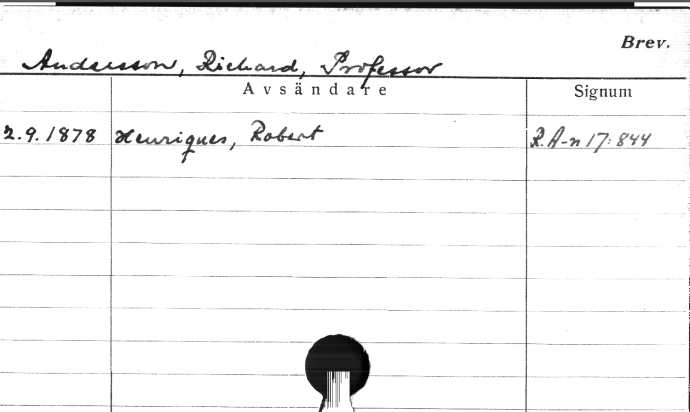 Brev.
Andersson, Richard, Professor
Avsändare Signum
2.9.1878 Henriques, Robert R.A-n 17:844